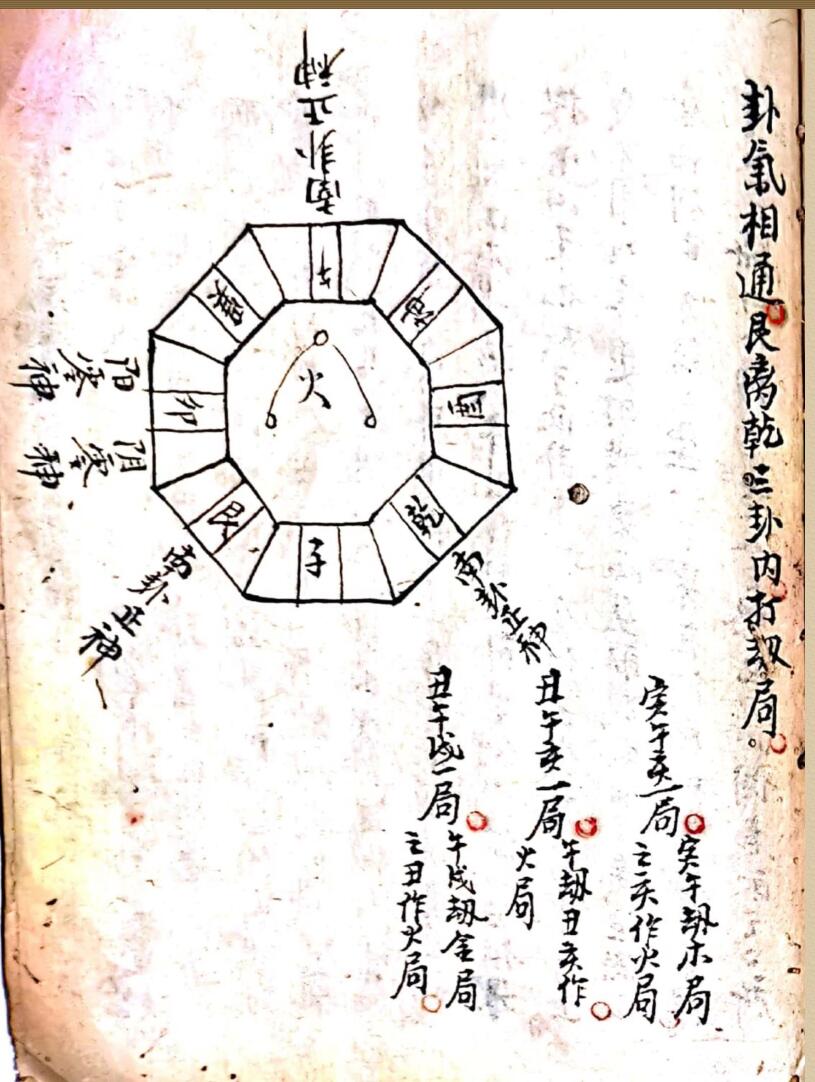 卦氣相通艮离乾三卦内打劫局。
寅午亥一局
寅午劫木局
之亥作火局
丑午亥一局
午劫丑亥作
火局
丑午戌一局
午戌劫金局
之丑作火局
南卦正神
午
坤
酉
乾
子
艮
卯
巽
火
南卦正神
南卦正神
阳零神
阴零神